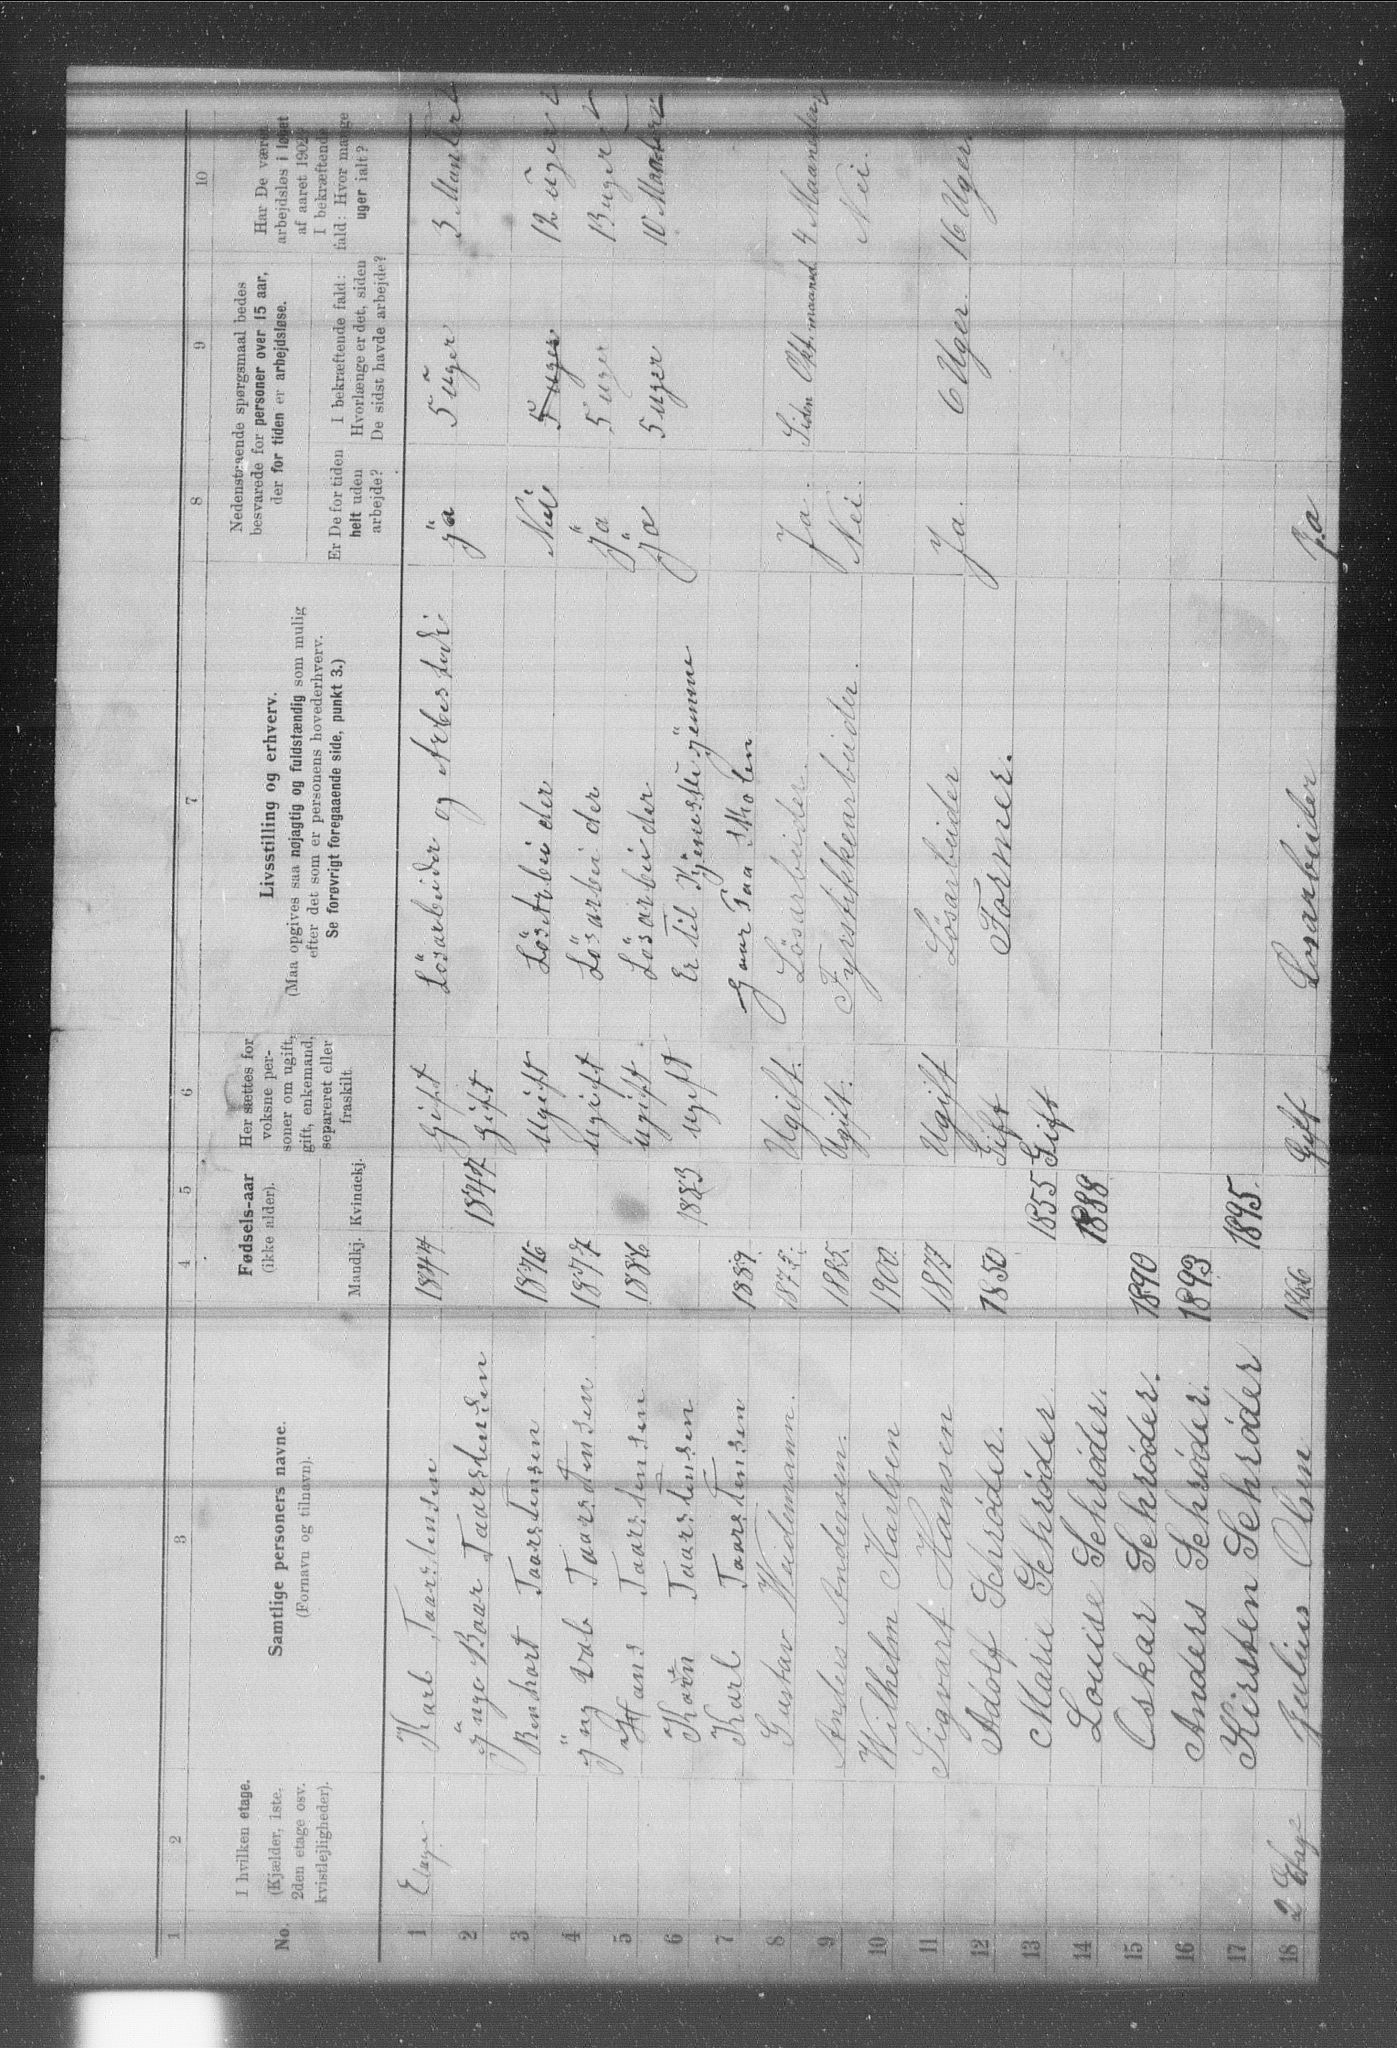 1 2 3 4 5 6 7 8 9 10
No.
I hvilken etage.
(Kjælder, 1ste.
2den etage osv.
kvistlejligheder).
Samtlige personers navne.
(Fornavn og tilnavn).
Fødsels-aar
(ikke alder).
Mandkj. Kvindekj.
Her sættes for
voksne per-
soner om ugift,
gift, enkemand,
separeret eller
fraskilt.
Livsstilling og erhverv.
(Maa opgives saa nøjagtig og fuldstændig som mulig
efter det som er personens hovederhverv.
Se forøvrigt foregaaende side, punkt 3.)
Nedenstraende spørgsmaal bedes
besvarede for personer over 15 aar,
der for tiden er arbejdsløse.
Er De for tiden
helt uden
arbejde?
I bekræftende fald:
Hvorlænge er det, siden
De sidst havde arbejde?
Har De været
arbejdsløs i løbet
af aaret 1902?
I bekræftende
fald: Hvor mange
uger ialt?
1 Etage Karl Taarstensen 1844 gift Lösarbeider og ja 5 uger 3
2 Baar Taarstensen 1847 gift
3 Taarstensen 1876 ugift Lös Arbeider Nei 5 uger 12 uger
4 Taarstensen 1877 ugift Lösarbeider ja 5 uger 13 uger
5 Hans Taarstensen 1886 ugift Lösarbeider ja 5 uger 10
6 Karen Taarstensen 1883 ugift Er til
7 Karl Taarstensen 1889 gaar paa skolen
8 Gustav Weidemann. Ugift. Lösarbeider. Ja. Siden Okt. maaned. 4 Maaneder
9 Anders Andersen. 1885. Ugift. Fyrstikkearbeider. Nei. Nei.
10 Wilhelm Karlsen 1900
11 Sigvart Hansen 1877 Ugift Lösarbeider Ja. 6 Uger. 16 Uger.
12 Adolf Schrøder. 1850 Gift Former.
13 Marie Schrøder 1855 Gift
14 Louise Schrøder. 1888
15 Oskar Schrøder. 1890
16 Anders Schrøder. 1893
17 Kirsten Schrøder 1895.
18 2 Etage Julius Olsen 1866 Gift Losarbeider Ja